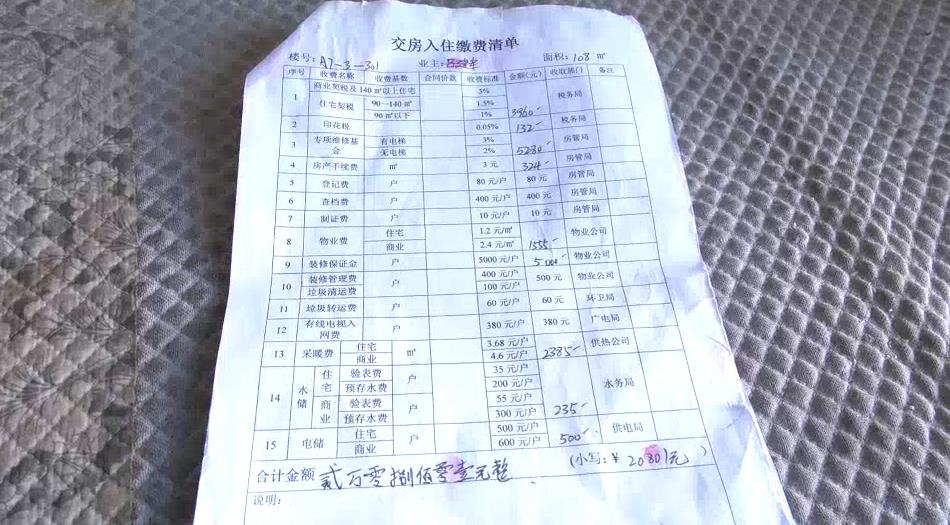 交房入住缴费清单
楼号：A7-3-301 业主： 面积：108 ㎡
序号 收费名称 收费基数 合同价款 收费标准 金额（元） 收取部门 备注
1 商业契税及 140 ㎡以上住宅 3% 税务局
住宅契税 90—140 ㎡ 1.5%
90 ㎡以下 1% 3960
2 印花税 0.05% 132 税务局
3 专项维修基金 有电梯 3% 房管局
无电梯 2% 5280
4 房产手续费 ㎡ 3 元 324 房管局
5 登记费 户 80 元/户 80 元 房管局
6 查档费 户 400 元/户 400 元 房管局
7 制证费 户 10 元/户 10 元 房管局
8 物业费 住宅 1.2 元/㎡ 物业公司
商业 2.4 元/㎡ 1555
9 装修保证金 户 5000 元/户 5000 物业公司
10 装修管理费 户 400 元/户 500 元 物业公司
垃圾清运费 100 元/户
11 垃圾转运费 户 60 元/户 60 元 环卫局
12 有线电视入网费 户 380 元/户 380 元 广电局
13 采暖费 住宅 ㎡ 3.68 元/户 供热公司
商业 4.6 元/户 2385
14 水储 住宅 验表费 户 35 元/户 水务局
预存水费 200 元/户
商业 验表费 户 55 元/户
预存水费 300 元/户 235
15 电储 住宅 户 500 元/户 供电局
商业 600 元/户 500
合计金额 贰万零捌佰零壹元整 （小写：￥20801元）
说明：